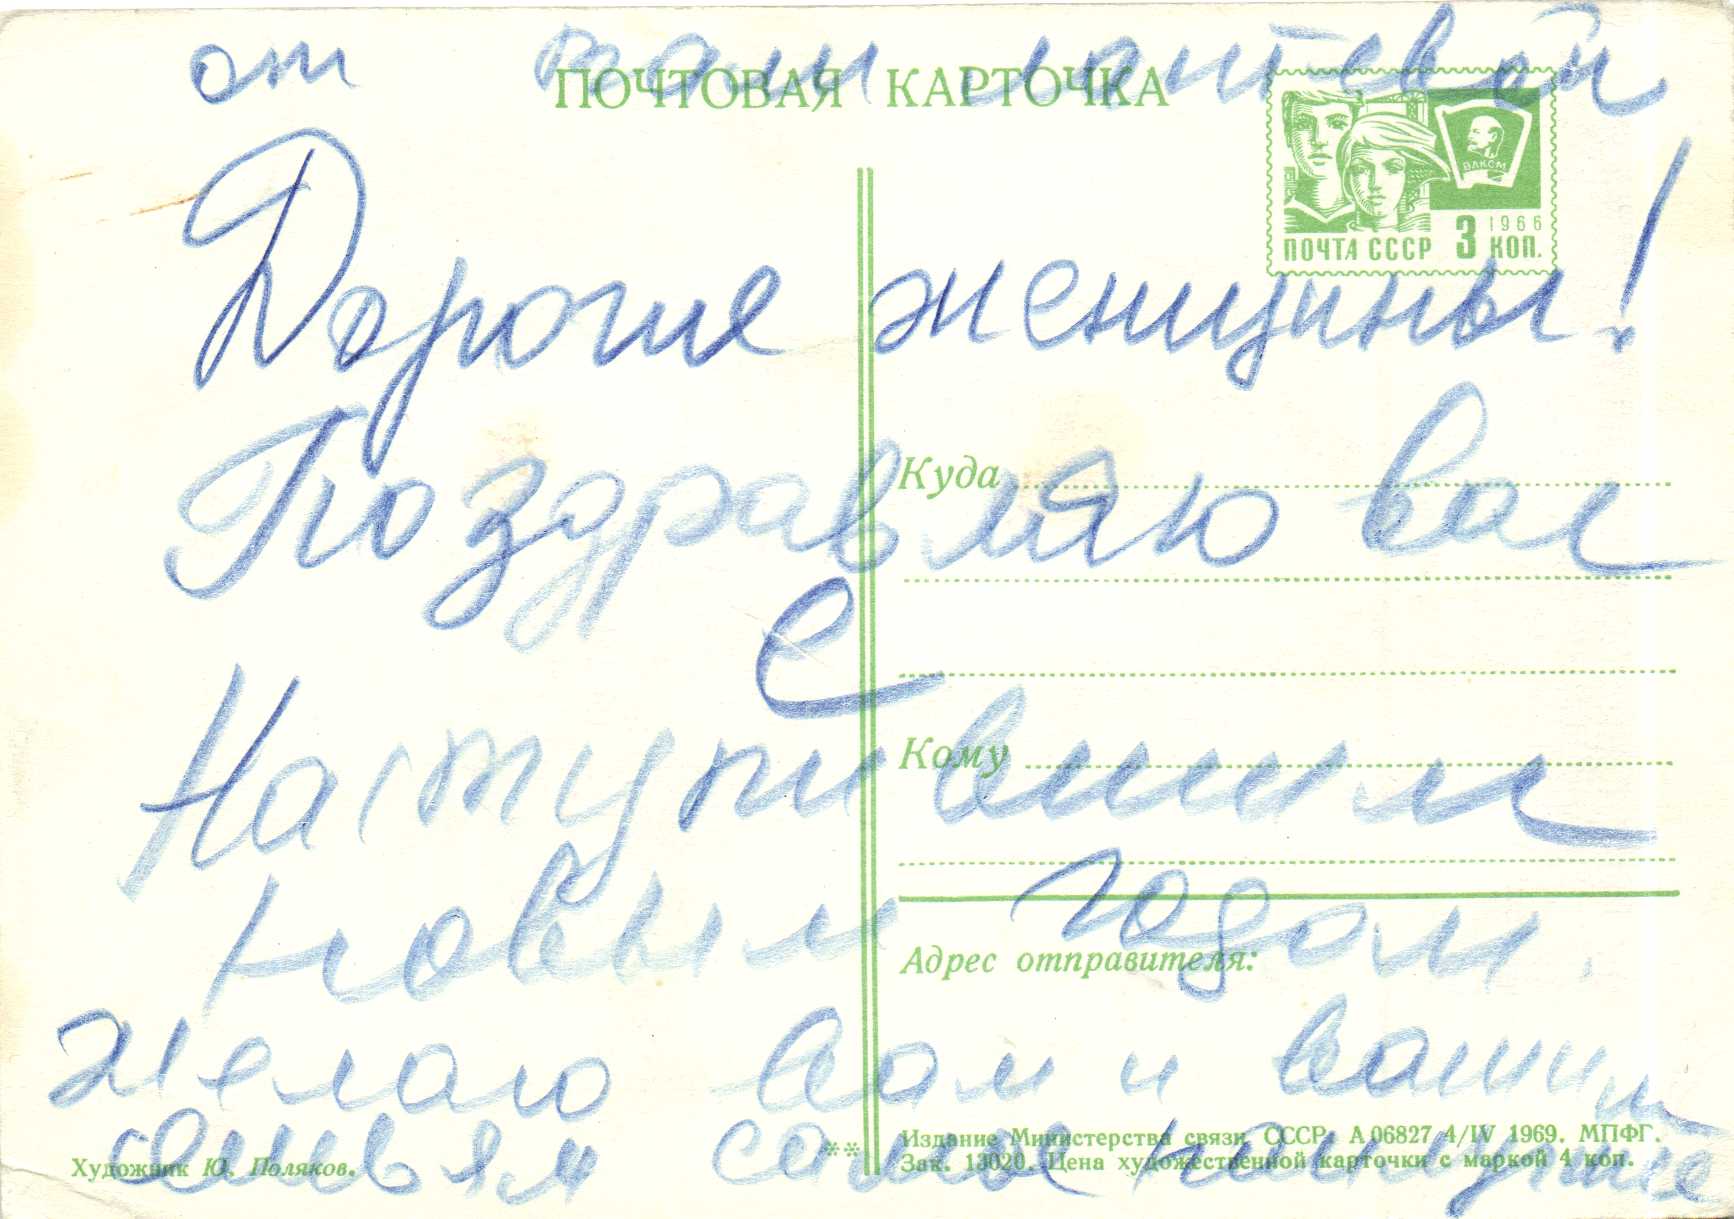 от вали лаптевой
ПОЧТОВАЯ КАРТОЧКА
ВЛКСМ
1966
ПОЧТА СССР 3 КОП.
Дорогие женщины!
Поздравляю вас
с
Наступившим
новым годом.
желаю вам и вашим
семьям самые наилучшие
Куда
Кому
Адрес отправителя:
Издание Министерства связи СССР. А 06827 4/IV 1969. МПФГ.
Зак. 13020. Цена художественной карточки с маркой 4 коп.
Художник Ю. Поляков.
**